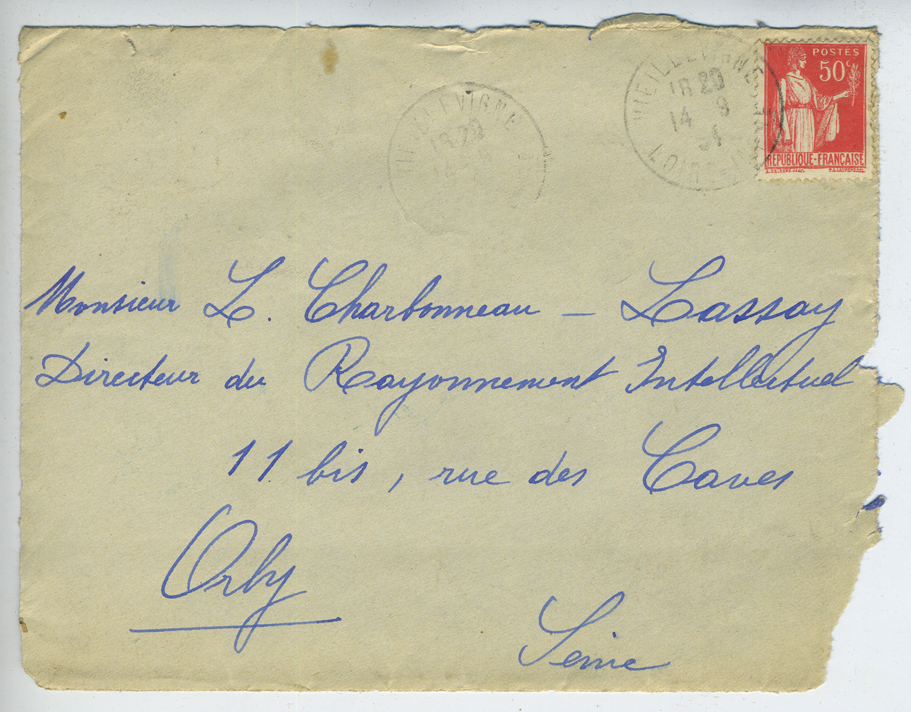 POSTES
50c
RÉPUBLIQUE-FRANÇAISE
VIEILLEVIGNE
18 20
14 9
34
LOIRE
VIEILLEVIGNE
18 20
14
Monsieur L. Charbonneau - Lassay
Directeur du Rayonnement Intellectuel
11 bis, rue des Caves
Orly
Seine